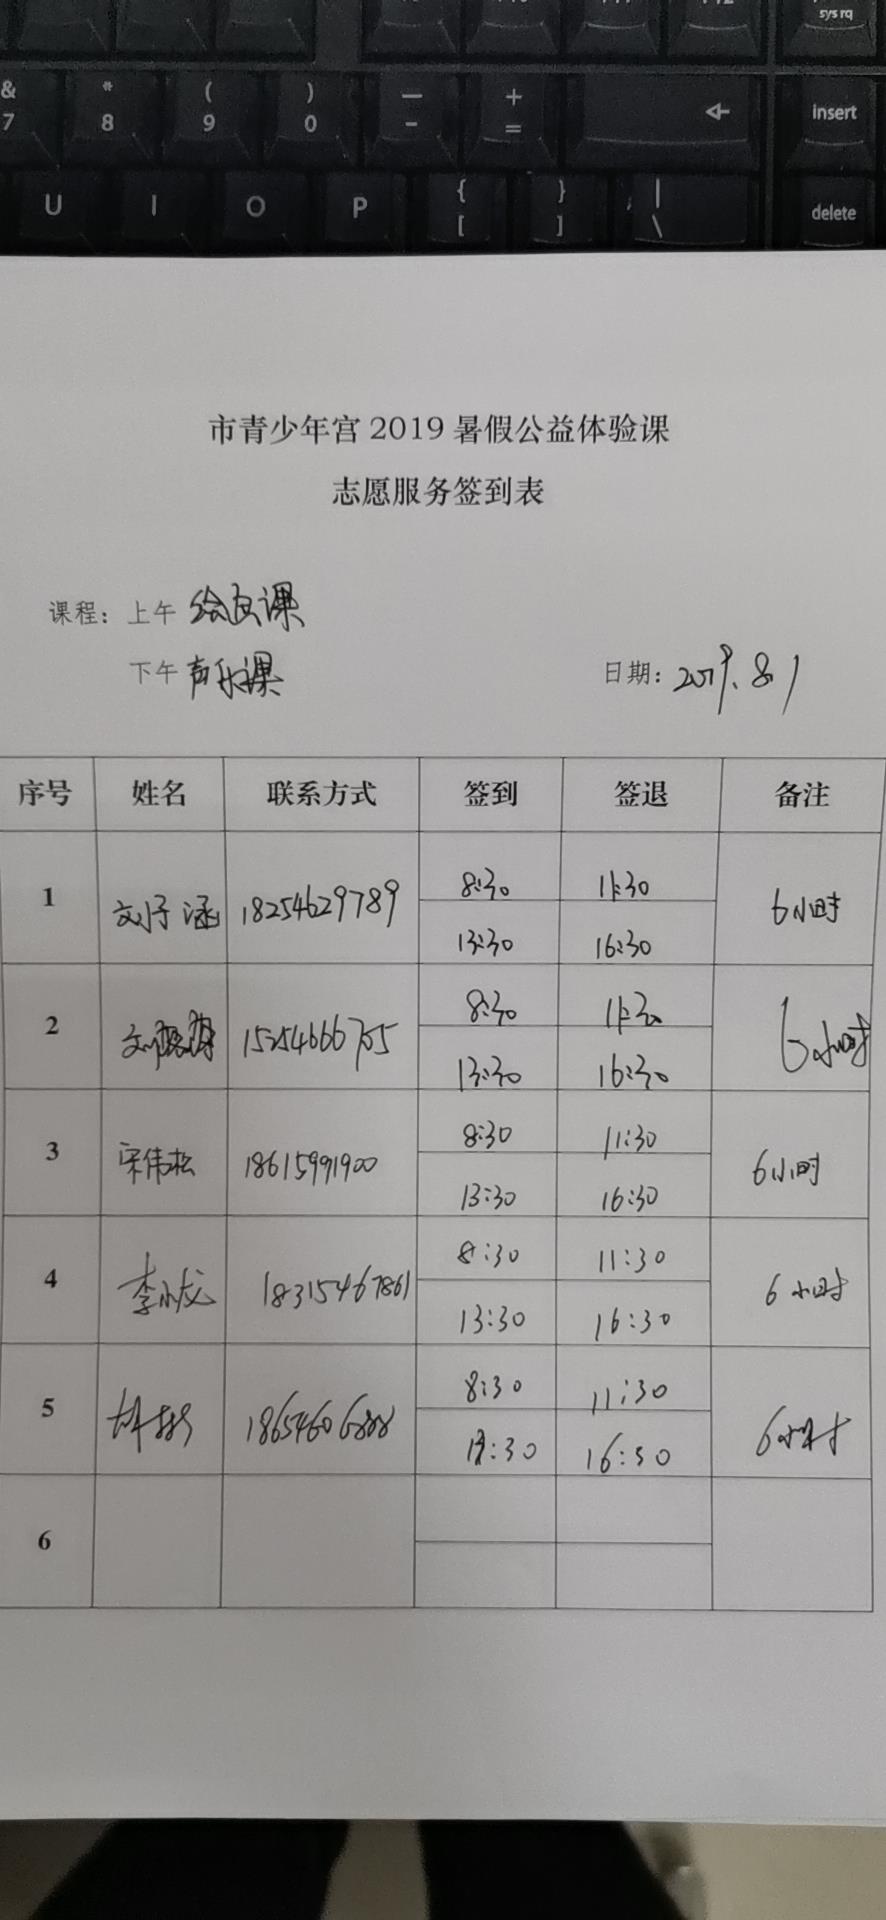 sys rq
& * ( ) — +
7 8 9 0 - = insert
{ } |
U I O P [ ] \ delete
市青少年宫2019暑假公益体验课
志愿服务签到表
课程：上午 绘画课
下午 声乐课 日期：2019.8.1
序号 姓名 联系方式 签到 签退 备注
1 刘子涵 18254629789 8:30 11:30 6小时
13:30 16:30
2 15254666705 8:30 11:30 6小时
13:30 16:30
3 宋伟松 18615991900 8:30 11:30 6小时
13:30 16:30
4 李小龙 18315467861 8:30 11:30 6小时
13:30 16:30
5 8:30 11:30 6小时
13:30 16:30
6